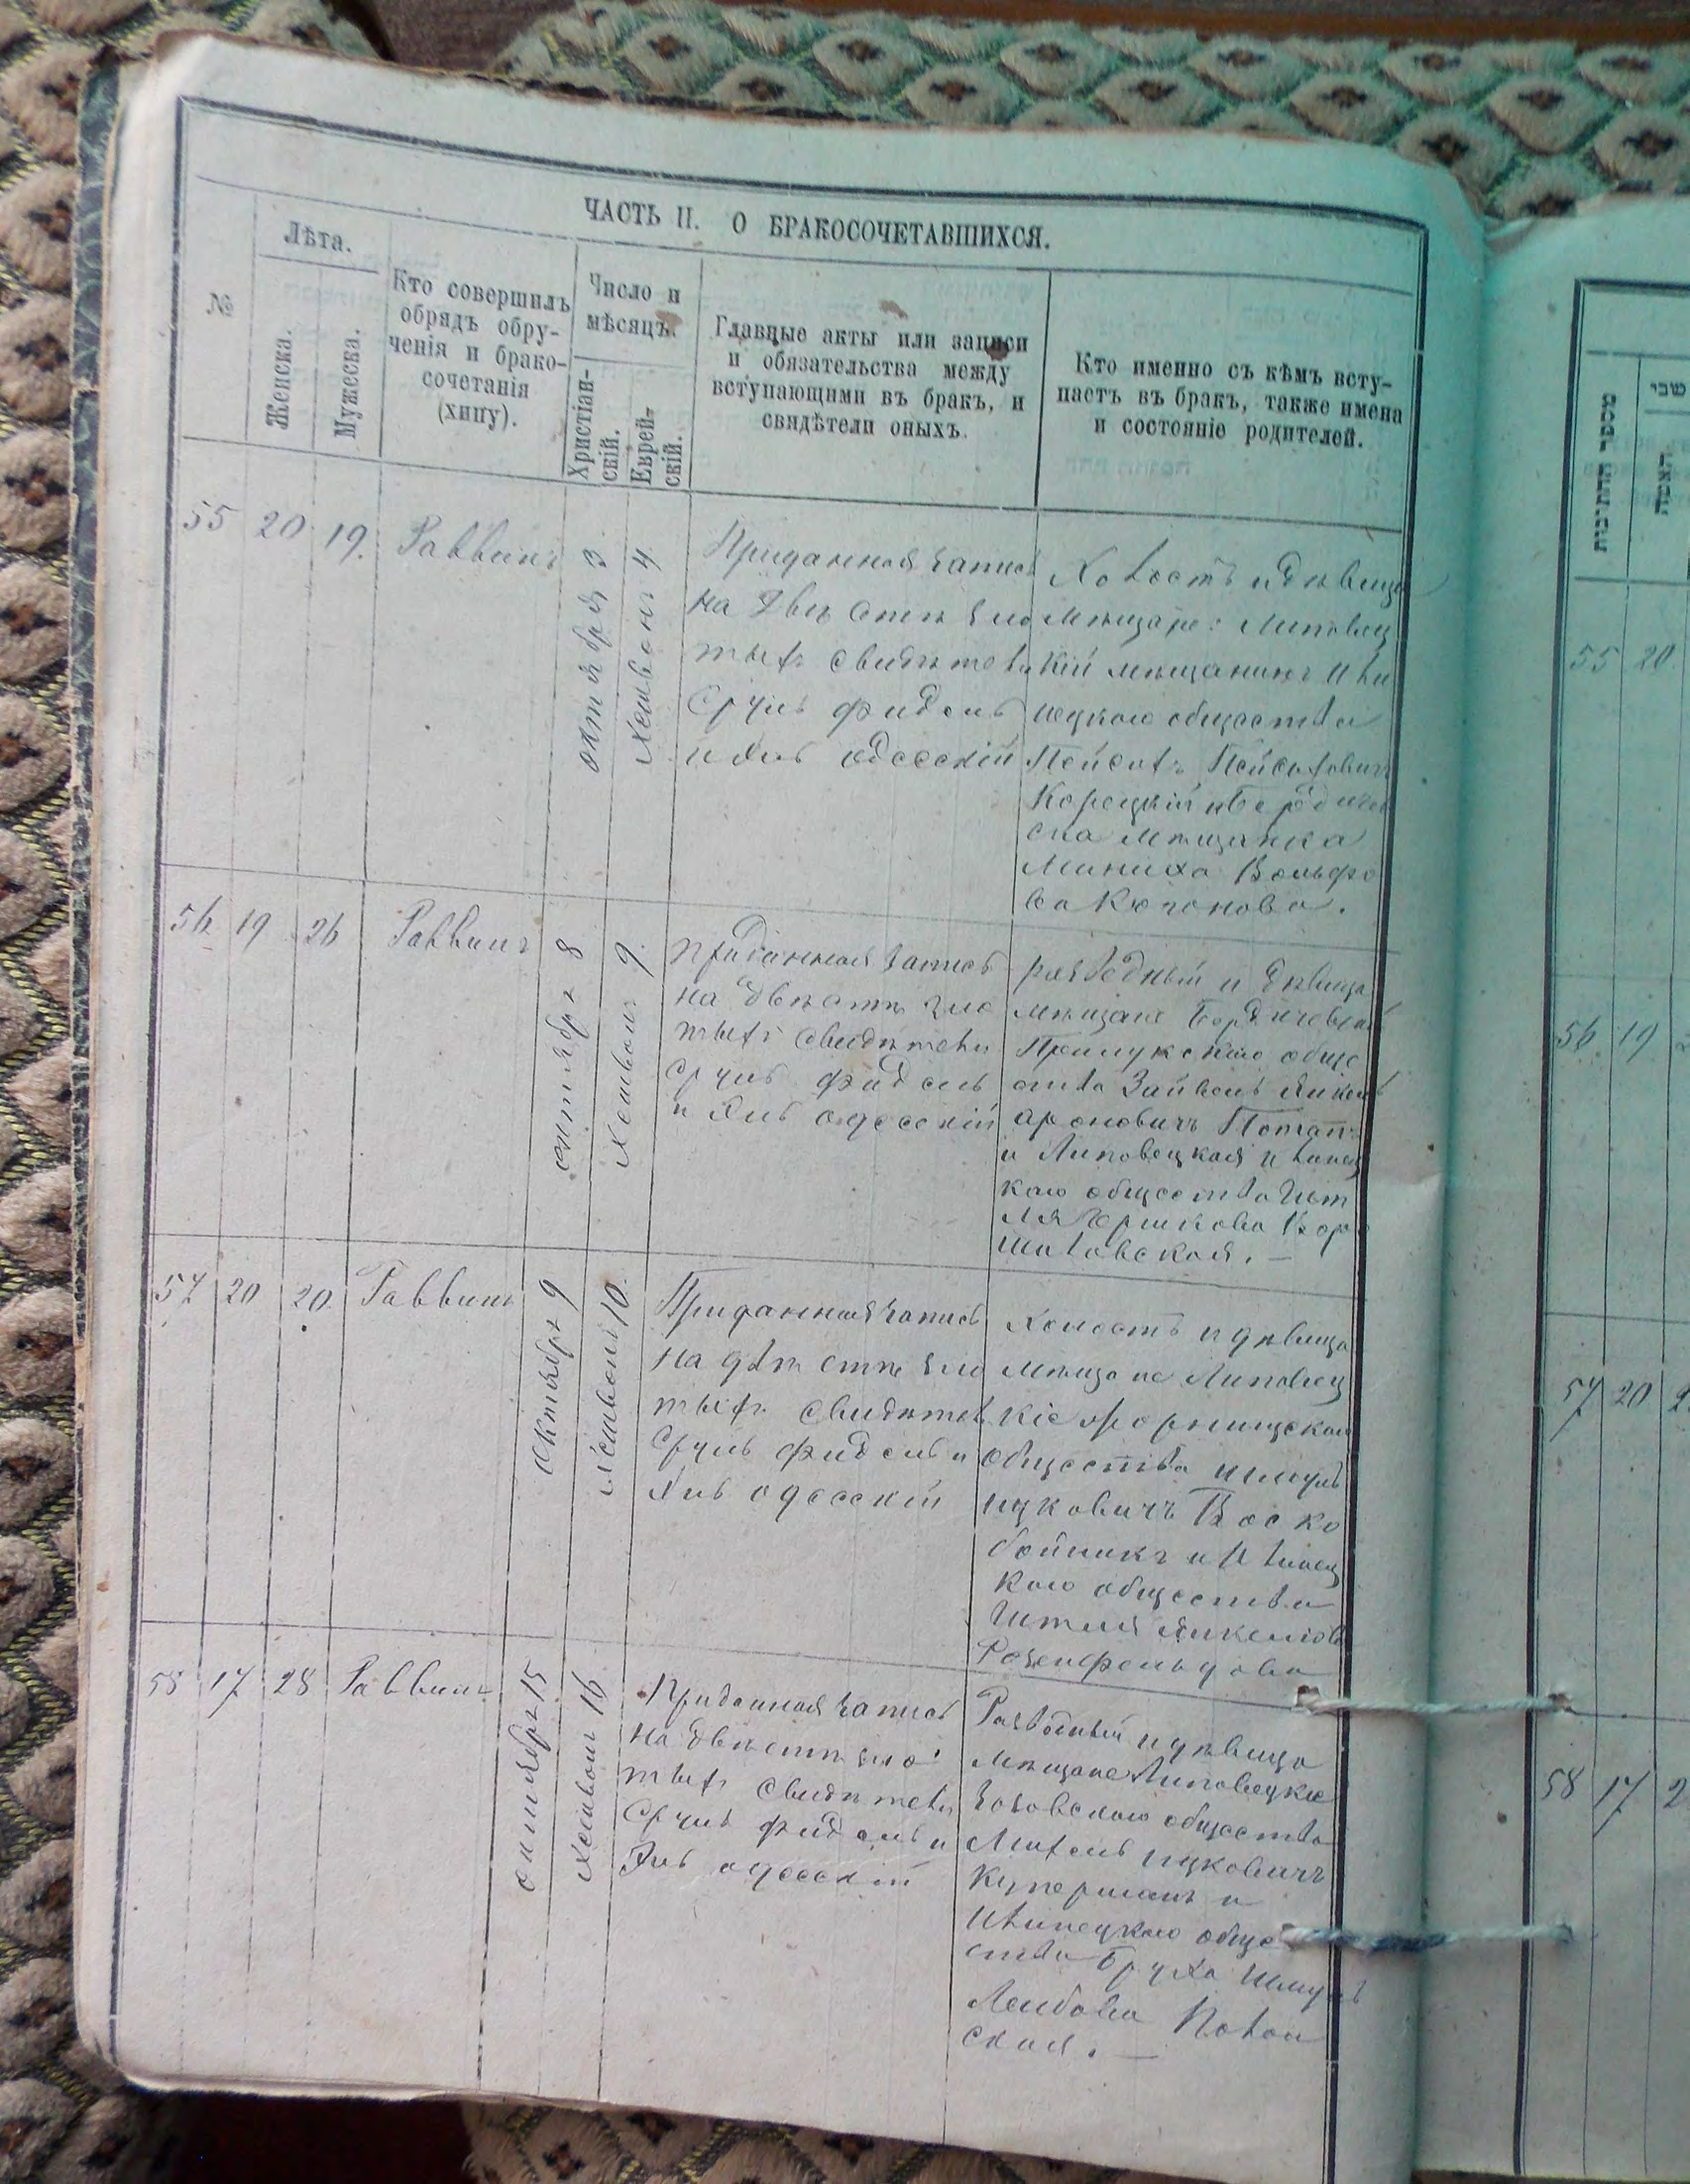 ЧАСТЬ II. О БРАКОСОЧЕТАВШИХСЯ.
№
Лѣта.
Женска.
Мужеска.
Кто совершилъ
обрядъ обру-
ченія и брако-
сочетанія
(хипу).
Число и
мѣсяцъ.
Христіан-
скій.
Еврей-
скій.
Главные акты или записи
и обязательства между
вступающими въ бракъ, и
свидѣтели оныхъ.
Кто именно съ кѣмъ всту-
паетъ въ бракъ, также имена
и состояніе родителей.
55 20 19. Раввинъ
октября 3
Хешвонъ 4.
Приданная запись
на двѣ стѣ зло
тыхъ свидѣтели
Сруль Фидель
и Янъ одесскій
Холостъ и дѣвица
мѣщане: Липовец
кій мѣщанинъ Или
нецкаго общества
Пейсахъ Пейсаховичъ
Корецкій и Бердичев
ска мѣщанка
Миниха Вольфо
ва Когонова.
56 19 26 Раввинъ
октября 8
Хешвонъ 9.
приданная запись
на двѣ стѣ зло
тыхъ свидѣтели
Сруль Фидель
и Янъ одесскій
разводный и дѣвица
мѣщане Бердичевскій
Прилукскаго обще
ства Зайвель Янкель
ароновичъ Потап
и Липовецкая Илинец
каго общества Ит
ля Гершкова Вор
шиловская. —
57 20 20. Раввинъ
октября 9
Хешвонъ 10.
Приданная запись
на двѣ стѣ зло
тыхъ свидѣтели
Сруль Фидель и
Янъ одесскій
Холостъ и дѣвица
мѣщане Липовец
кіе Жорнищскаго
общества Шмуль
ицковичъ Воско
бойникъ и Илинец
каго общества
Итля Янкелюва
Розенфельдова
58 17 28 Раввинъ
октября 15
Хешвонъ 16
Приданная запись
на двѣ стѣ зло
тыхъ свидѣтели
Сруль Фидель и
Янъ одесскій
Разводный и дѣвица
мѣщане Липовецкіе
Зозовскаго общества
ицковичъ
Куперманъ и
Илинецкаго обще
ства Бруха Шмуль
Лейбова
ская. —
55 20
56 19
57 20
58 17